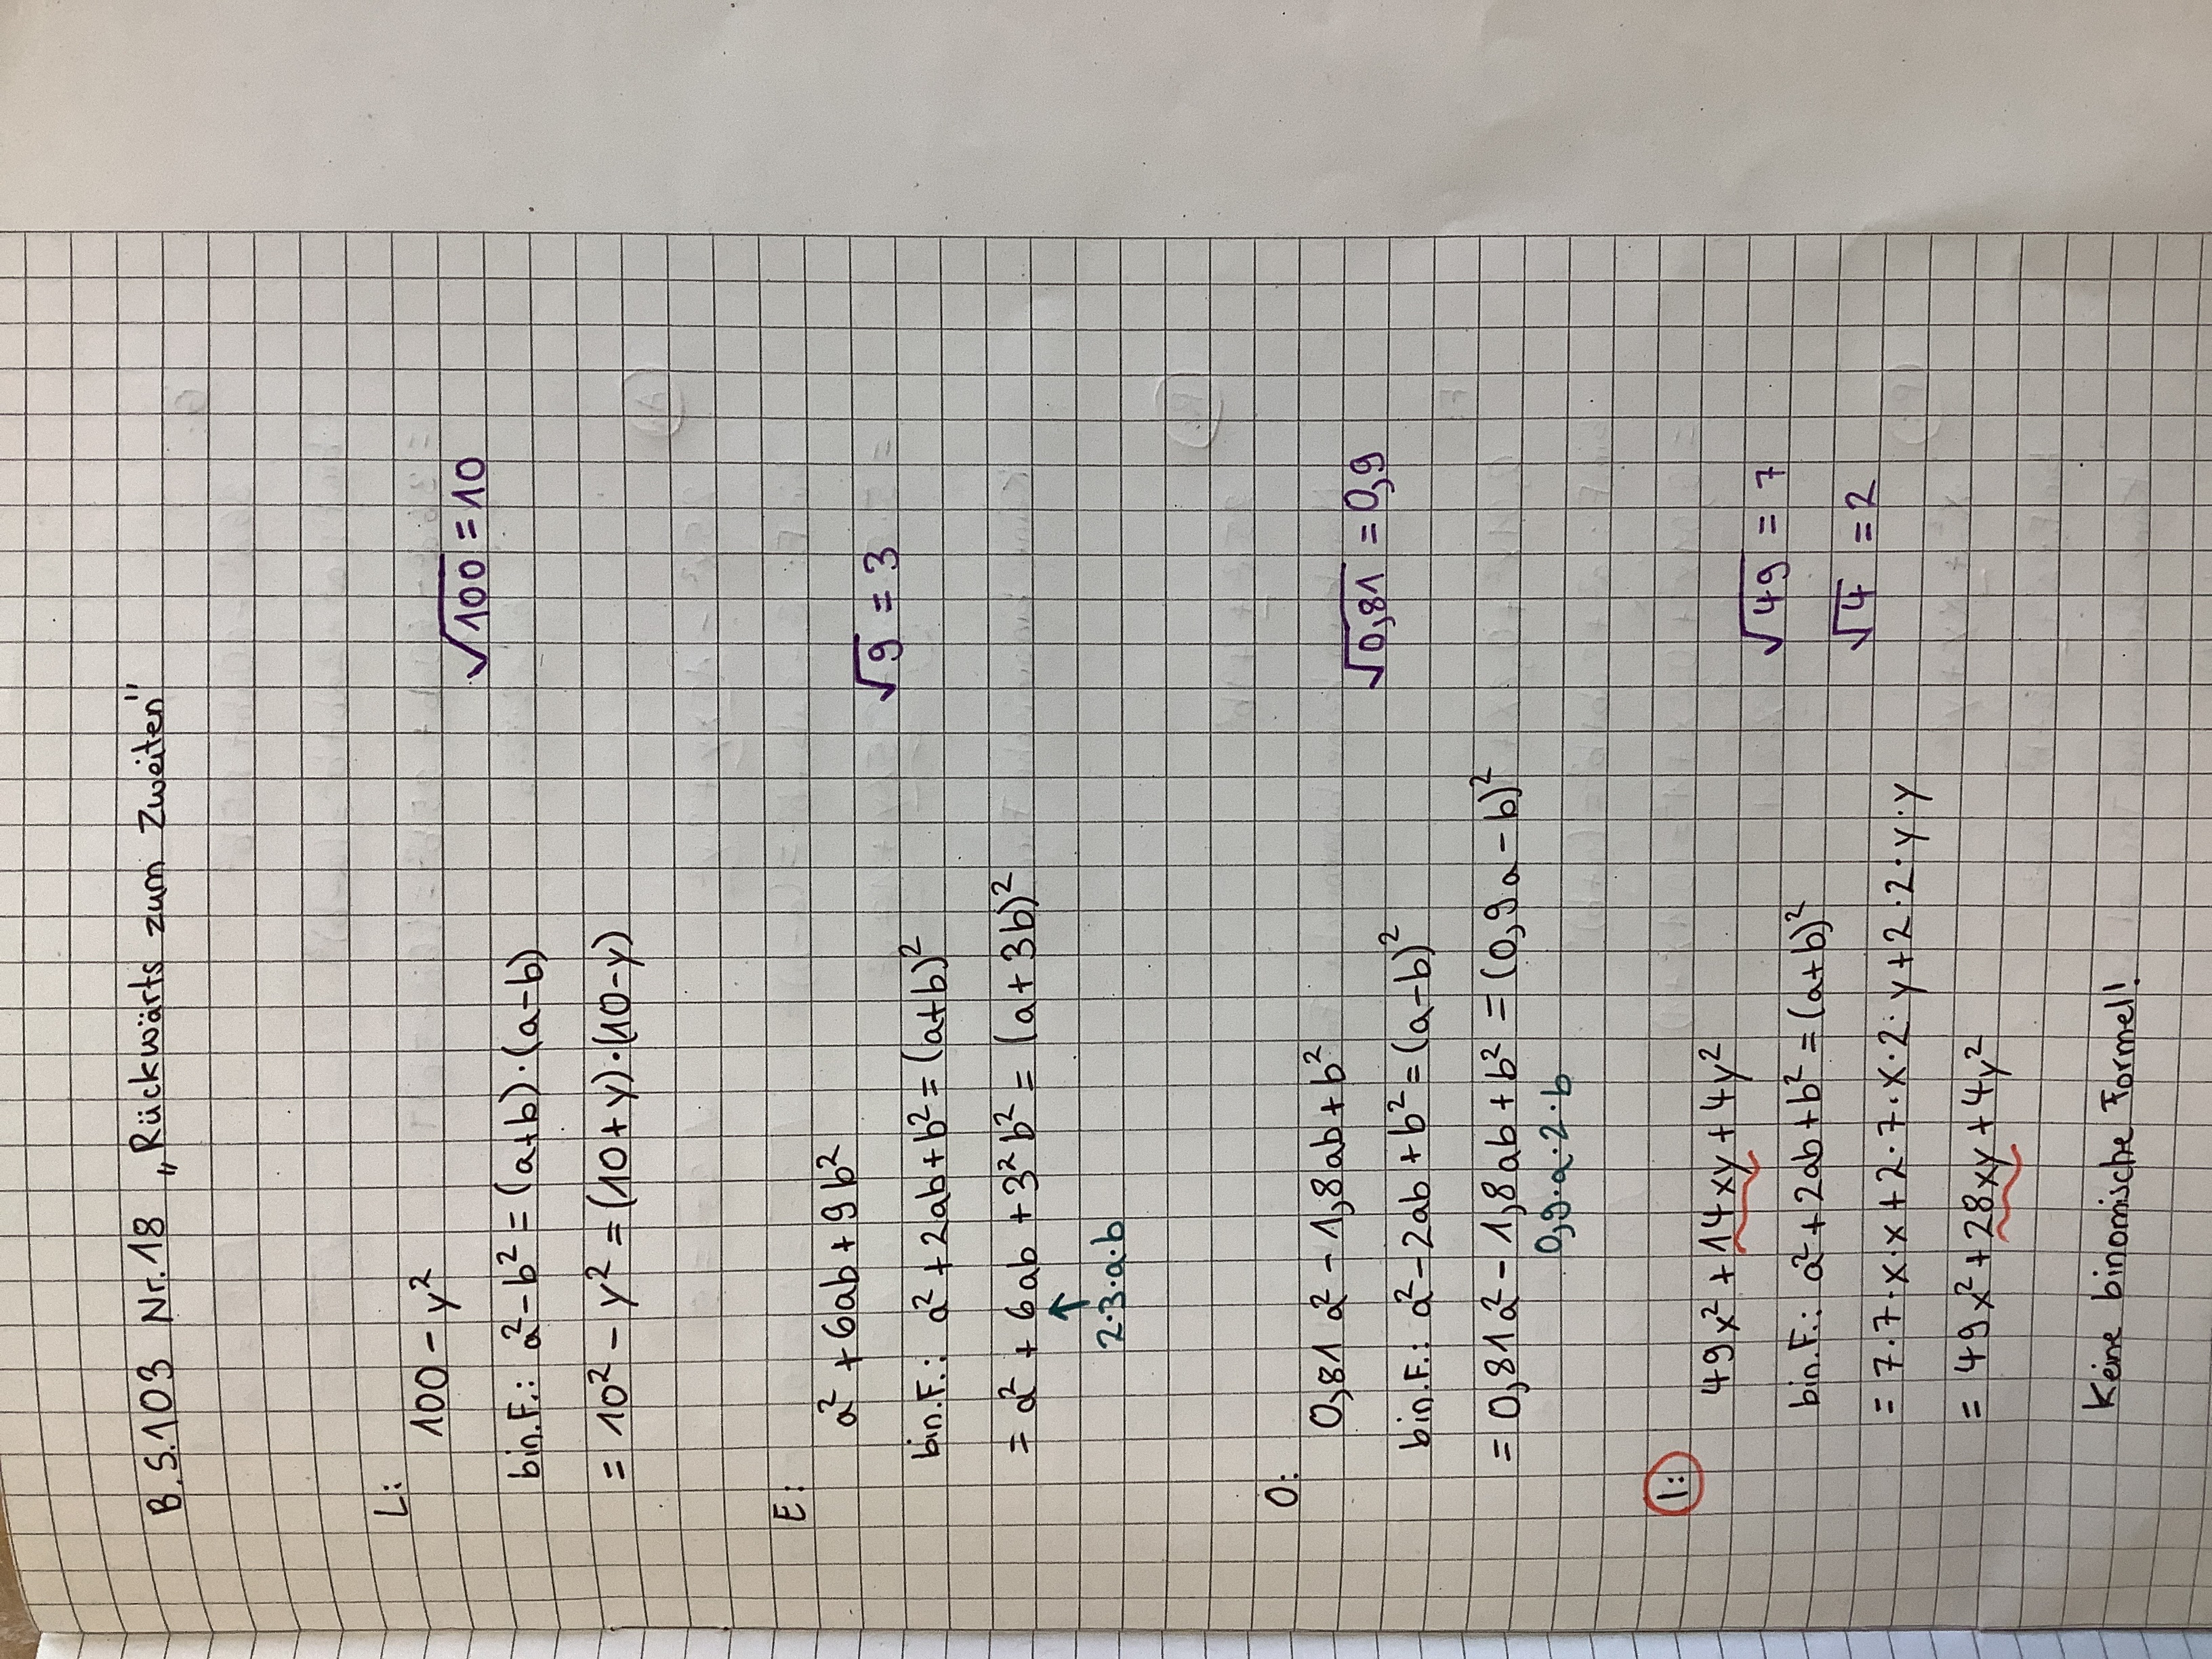 B.S.103 Nr.18 „Rückwärts zum Zweiten"
L:
100 - y²
√100 = 10
bin.F.: a² - b² = (a+b)·(a-b)
= 10² - y² = (10+y)·(10-y)
E:
a² + 6ab + 9b²
√9 = 3
bin.F.: a² + 2ab + b² = (a+b)²
= a² + 6ab + 3²b² = (a+3b)²
↑
2·3·a·b
O:
0,81a² - 1,8ab + b²
√0,81 = 0,9
bin.F.: a² - 2ab + b² = (a-b)²
= 0,81a² - 1,8ab + b² = (0,9a - b)²
0,9·a·2·b
I:
49x² + 14xy + 4y²
√49 = 7
bin.F.: a² + 2ab + b² = (a+b)²
√4 = 2
= 7·7·x·x + 2·7·x·2·y + 2·2·y·y
= 49x² + 28xy + 4y²
Keine binomische Formel!